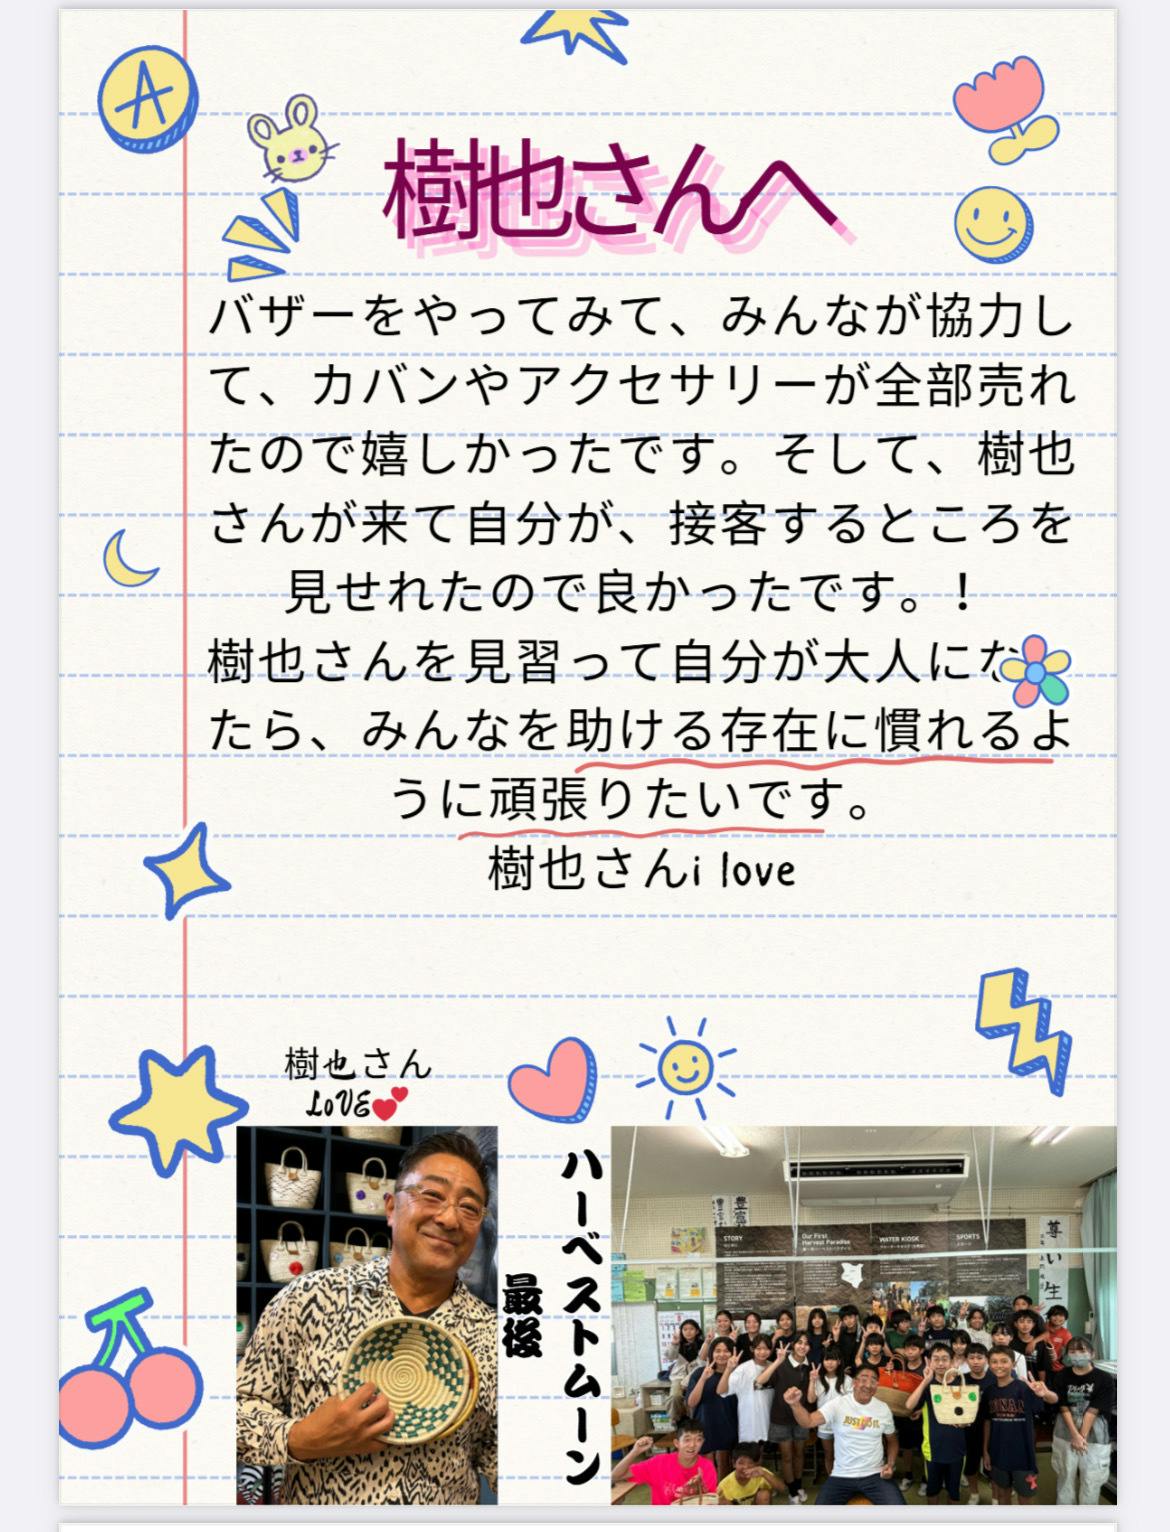 A
樹也さんへ
バザーをやってみて、みんなが協力し
て、カバンやアクセサリーが全部売れ
たので嬉しかったです。そして、樹也
さんが来て自分が、接客するところを
見せれたので良かったです。!
樹也さんを見習って自分が大人にな
たら、みんなを助ける存在に慣れるよ
うに頑張りたいです。
樹也さんi love
樹也さん
LOVE
ハーベストムーン
最後
STORY
Our First
Harvest Paradise
WATER KIOSK
SPORTS
豊富
尊い生
JUST DO IT.